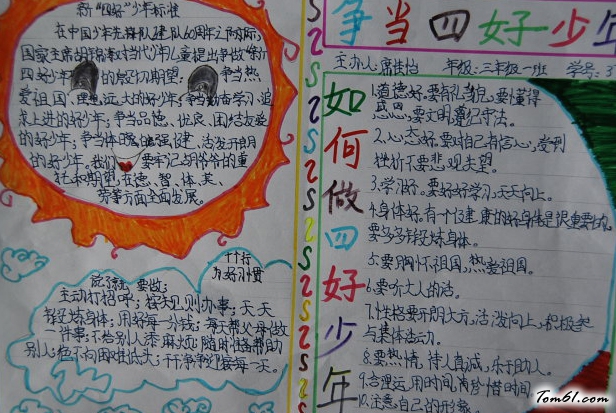 新“四好”少年标准
在中国少年先锋队建队60周年之际,
国家主席胡锦涛对当代少年儿童提出争做“新
四好少年”的殷切期望。 争当热
爱祖国、理想远大的好少年；争当勤奋学习、追
求上进的好少年；争当品德优良、团结友爱
的好少年；争当体魄强健、活泼开朗
的好少年。我们 要牢记胡爷爷的重
托和期望，在德、智、体、美、
劳等方面全面发展。
十个
好习惯
主动打招呼；按规则办事；天天
锻炼身体；用好每一分钱；每天帮父母做
一件事；不给别人添麻烦；随时准备帮助
别人；绝不向困难低头；干干净净迎接每一天。
争当四好少年
主办人: 席佳怡 年级:三年级一班 学号:
如何做四好少年
1.道德好。要有礼貌,要懂得
感恩,要文明遵纪守法。
2.心态好。要对自己有信心,受到
挫折不要悲观失望。
3.学习好。要好好学习,天天向上。
4.身体好。有一个健康的好身体是很重要的,
要多多锻炼身体。
5.要胸怀祖国,热爱祖国。
6.要听大人的话。
7.性格要开朗大方,活泼向上,积极参
与集体活动。
8.要热情,待人真诚,乐于助人。
9.合理运用时间,珍惜时间
10.注意自己的形象
Tom61.com